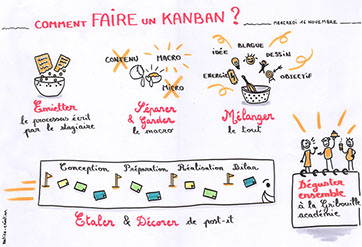 COMMENT FAIRE UN KANBAN ?
MERCREDI 16 NOVEMBRE
CONTENU
MACRO
MICRO
IDÉE
BLAGUE
DESSIN
ÉNERGIE
OBJECTIF
Emietter
le processus écrit
par le stagiaire
Séparer
& Garder
le macro
Mélanger
le tout
Conception Préparation Réalisation Bilan
Etaler & Décorer de post-it
Déguster
ensemble
à la Gribouille
académie